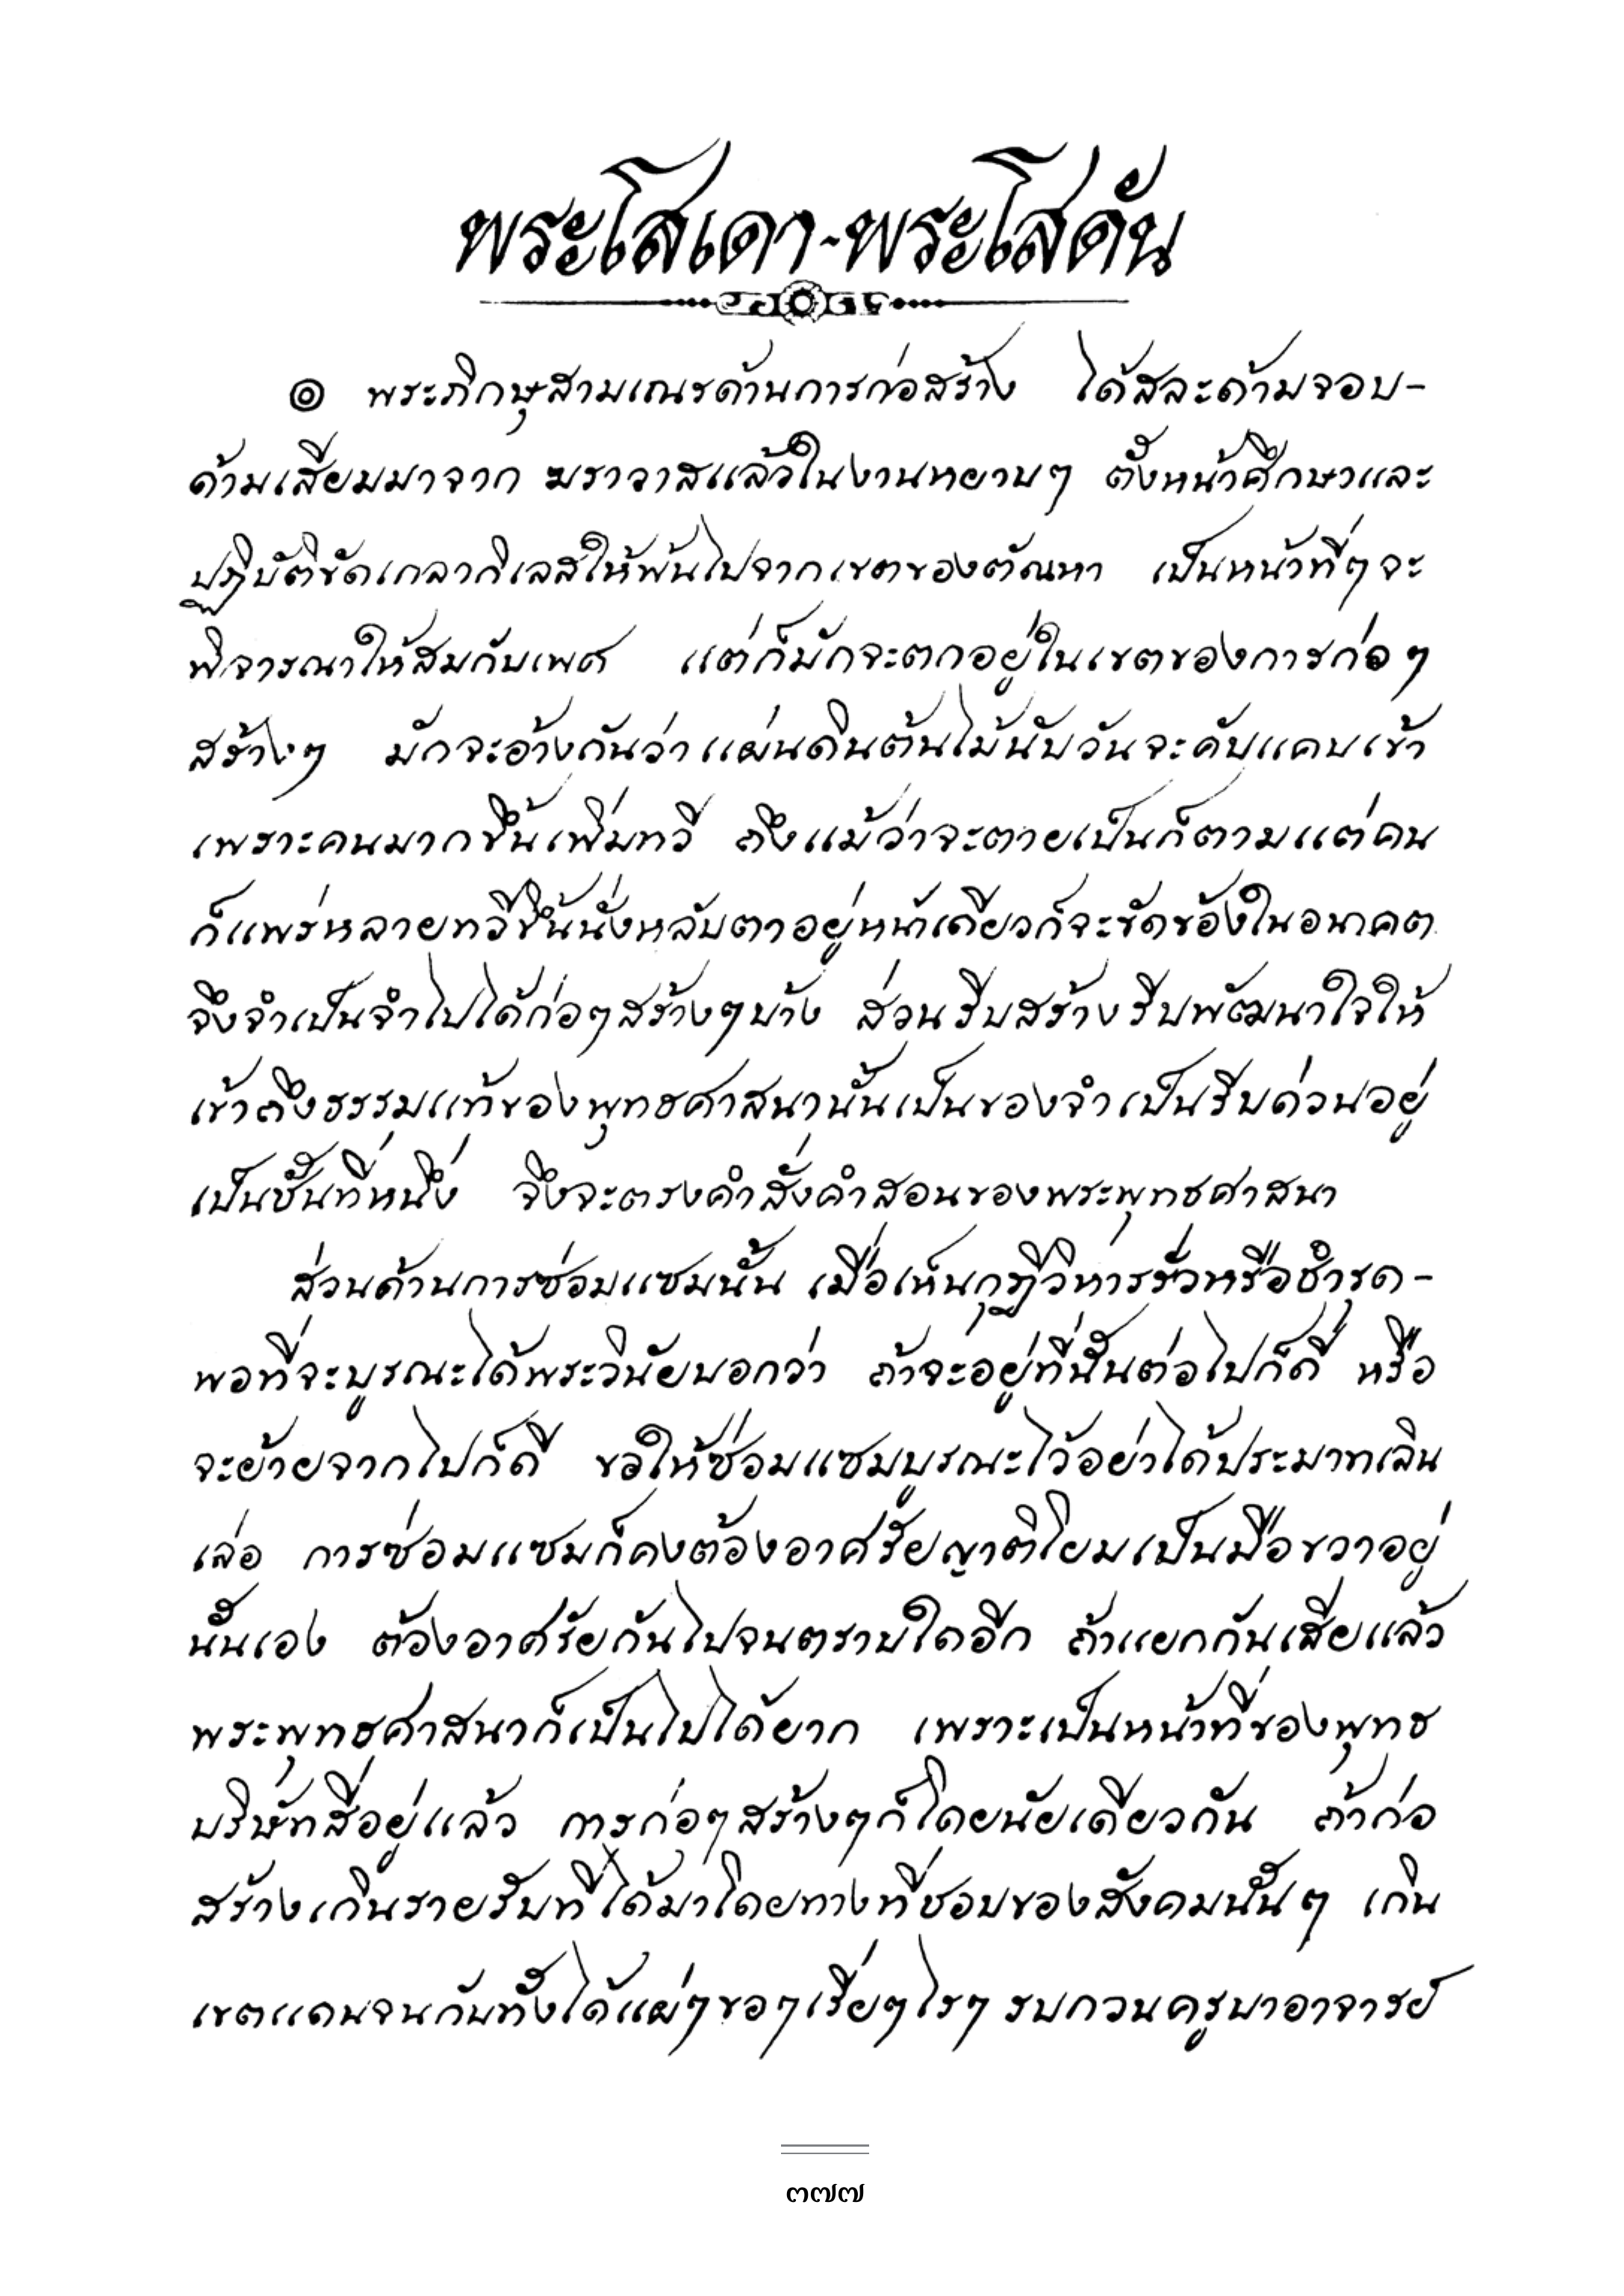 พระโสเดา-พระโสดัน
๏ พระภิกษุสามเณรด้านการก่อสร้าง ได้สละด้ามจอบ-
ด้ามเสียมมาจาก ฆราวาสแล้วในงานหยาบๆ ตั้งหน้าศึกษาและ
ปฏิบัติขัดเกลากิเลสให้พ้นไปจากเขตของตัณหา เป็นหน้าที่ๆจะ
พิจารณาให้สมกับเพศ แต่ก็มักจะตกอยู่ในเขตของการก่อๆ
สร้างๆ มักจะอ้างกันว่าแผ่นดินต้นไม้นับวันจะคับแคบเข้า
เพราะคนมากขึ้นเพิ่มทวี ถึงแม้ว่าจะตายเป็นก็ตามแต่คน
ก็แพร่หลายทวีขึ้นนั่งหลับตาอยู่หน้าเดียวก็จะขัดข้องในอนาคต
จึงจำเป็นจำไปได้ก่อๆสร้างๆบ้าง ส่วนรีบสร้างรีบพัฒนาใจให้
เข้าถึงธรรมแท้ของพุทธศาสนานั้นเป็นของจำเป็นรีบด่วนอยู่
เป็นชั้นที่หนึ่ง จึงจะตรงคำสั่งคำสอนของพระพุทธศาสนา
ส่วนด้านการซ่อมแซมนั้น เมื่อเห็นกุฏิวิหารรั่วหรือชำรุด-
พอที่จะบูรณะได้พระวินัยบอกว่า ถ้าจะอยู่ที่นั่นต่อไปก็ดี หรือ
จะย้ายจากไปก็ดี ขอให้ซ่อมแซมบูรณะไว้อย่าได้ประมาทเลิน
เล่อ การซ่อมแซมก็คงต้องอาศรัยญาติโยมเป็นมือขวาอยู่
นั่นเอง ต้องอาศรัยกันไปจนตราบใดอีก ถ้าแยกกันเสียแล้ว
พระพุทธศาสนาก็เป็นไปได้ยาก เพราะเป็นหน้าที่ของพุทธ
บริษัทสี่อยู่แล้ว การก่อๆสร้างๆก็โดยนัยเดียวกัน ถ้าก่อ
สร้างเกินรายรับที่ได้มาโดยทางที่ชอบของสังคมนั้นๆ เกิน
เขตแดนจนกับทั้งได้แผ่ๆขอๆเรี่ยๆไรๆ รบกวนครูบาอาจารย์
๓๗๗